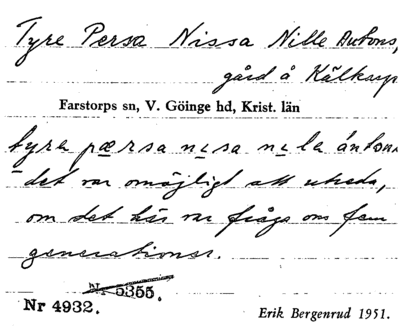 Tyre Persa Nissa Nille Antons,
gård å Kälkarp
Farstorps sn, V. Göinge hd, Krist. län
tyra pærsa nisa nila ántons
det var omöjligt att utreda,
om det här var fråga om fem
generationer.
Nr 5355.
Nr 4932.
Erik Bergenrud 1951.